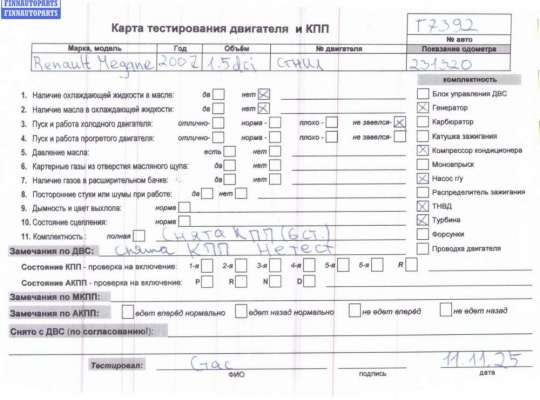 FINNAUTOPARTS
FINNAUTOPARTS
Карта тестирования двигателя и КПП
Г7392
№ авто
Марка, модель Год Объём № двигателя Показание одометра
Renault Megane 2007 1.5 dci 231320
комплектность
1. Наличие охлаждающей жидкости в масле: да нет Блок управления ДВС
2. Наличие масла в охлаждающей жидкости: да нет Генератор
3. Пуск и работа холодного двигателя: отлично- норма - плохо - не завелся- Карбюратор
4. Пуск и работа прогретого двигателя: отлично- норма - плохо - не завелся- Катушка зажигания
5. Давление масла: есть нет Компрессор кондиционера
6. Картерные газы из отверстия масляного щупа: да нет Моновпрыск
7. Наличие газов в расширительном бачке: да нет Насос г/у
8. Посторонние стуки или шумы при работе: да нет Распределитель зажигания
9. Дымность и цвет выхлопа: норма ТНВД
10. Состояние сцепления: норма Турбина
11. Комплектность: полная снята КПП (6ст.) Форсунки
Замечания по ДВС: снята КПП Не тест Проводка двигателя
Состояние КПП - проверка на включение: 1-я 2-я 3-я 4-я 5-я 6-я R
Состояние АКПП - проверка на включение: P R N D
Замечания по МКПП:
Замечания по АКПП: едет вперёд нормально едет назад нормально не едет вперёд не едет назад
Снято с ДВС (по согласованию!):
Тестировал: Стас 11.11.25
ФИО подпись дата